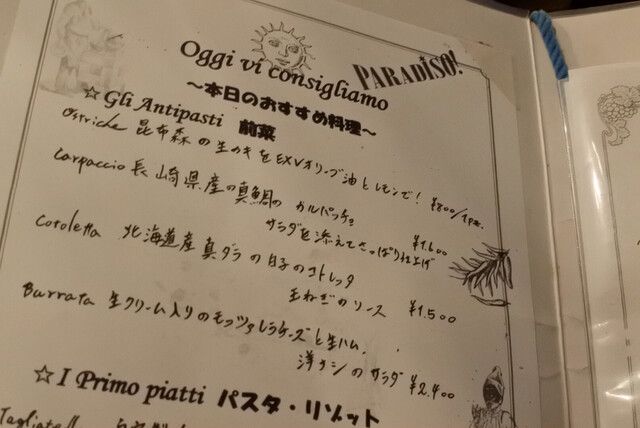 Oggi vi consigliamo
PARADISO!
～本日のおすすめ料理～
☆Gli Antipasti 前菜
Ostriche 昆布森の生カキをEXVオリーブ油とレモンで! ¥800/1pz.
Carpaccio 長崎県産の真鯛の カルパッチョ
サラダを添えてさっぱり仕上げ ¥1.600
Cotoletta 北海道産真ダラの白子のコトレッタ
玉ねぎのソース ¥1.500
Burrata 生クリーム入りのモッツァレラチーズと生ハム、
洋ナシのサラダ ¥2.400
☆I Primo piatti パスタ・リゾット